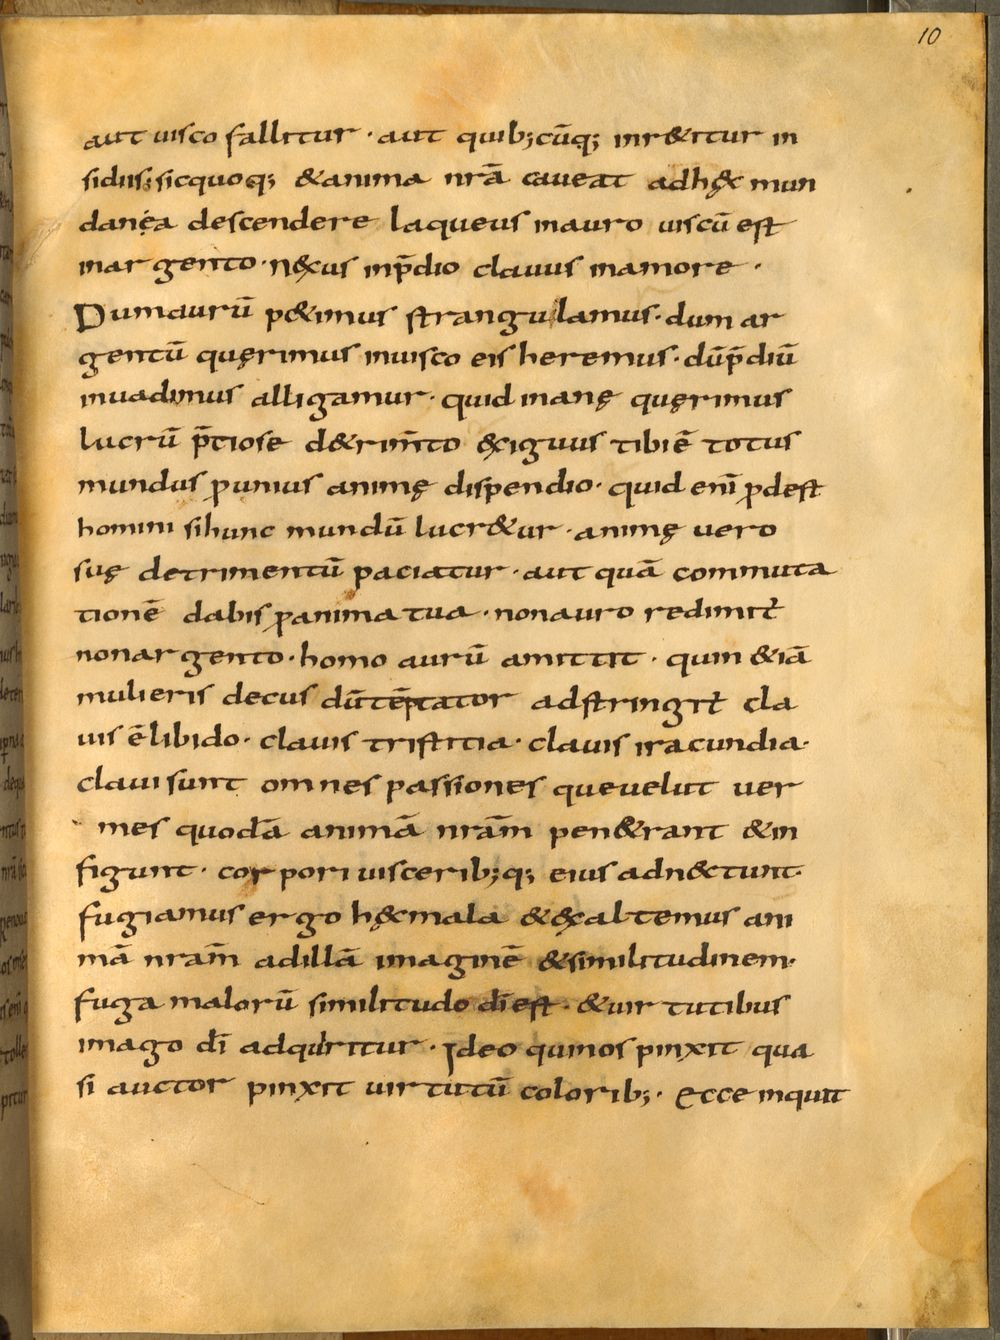 10
aut uisco fallitur · aut quib;cūq; inr&itur in
sidiis; sicquoq; &anima nrā caueat adhęc mun
danęa descendere laqueus inauro uiscū est
inargento · nexus inp̄dio clauus inamore ·
Dumaurū p&imus strangulamus · dum ar
gentū quęrimus inuisco eis heremus · dūp̄diū
inuadimus alligamur · quid inanę quęrimus
lucrū p̄tiose d&rim̄to exiguus tibiē totus
mundus ꝓunius animę dispendio · quid enī ꝓdest
homini sihunc mundū lucr&ur · animę uero
suę detrimentū paciatur · aut quā commuta
tionē dabis ꝓanima tua · nonauro redimit̄
nonargento · homo aurū amittit · quin &iā
mulieris decus dū tēptator adstringit̄ cla
uis ē libido · clauis tristitia · clauis iracundia ·
claui sunt omnes passiones queuelut uer
mes quodā animā nrām pen&rant &in
figunt · corpori uiscerib;q; eius adnectunt ·
fugiamus ergo hęcmala &exaltemus ani
mā nrām adillā imaginē &similitudinem ·
fuga malorū similitudo dī est · &uirtutibus
imago dī adquiritur · Ideo quinos pinxit qua
si auctor pinxit uirtutū colorib; · ecce inquit